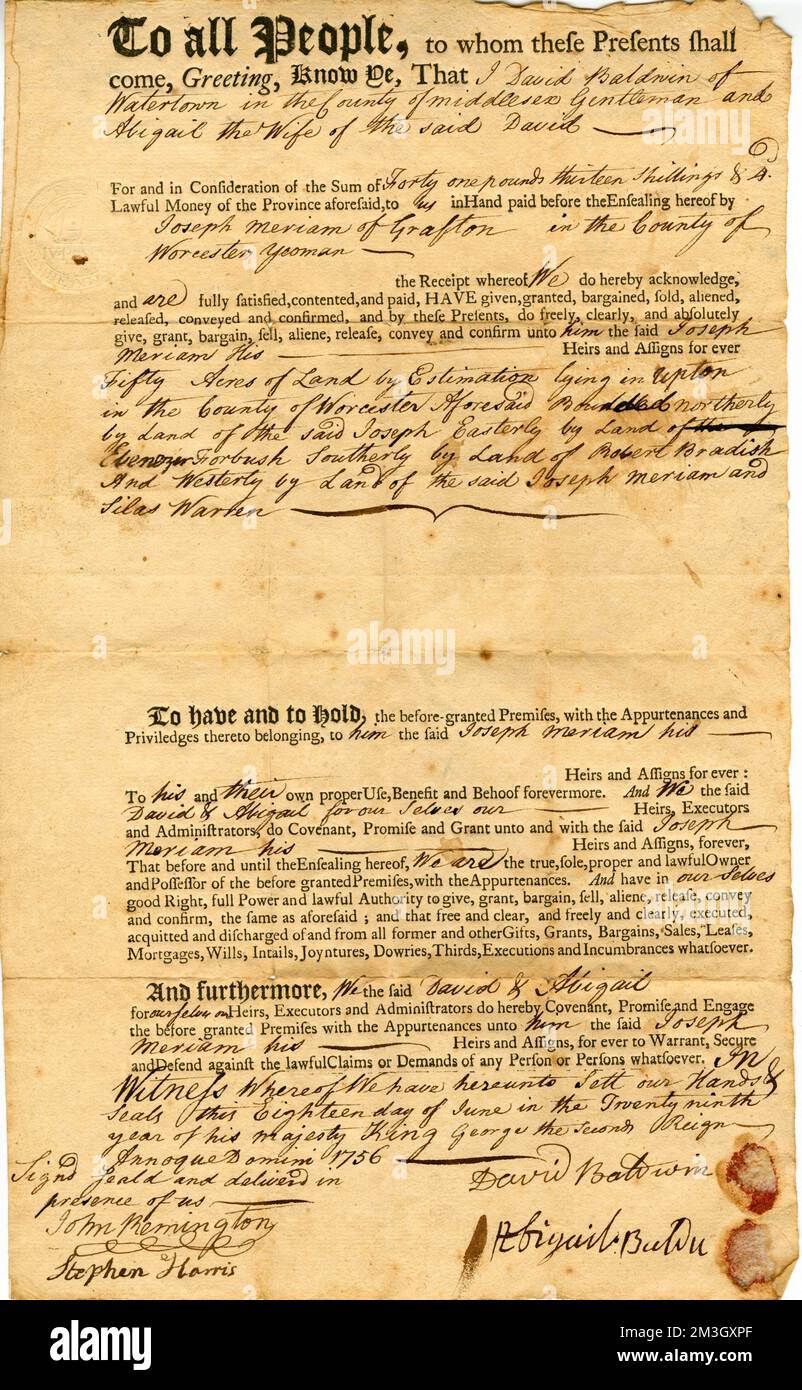 To all People, to whom theſe Preſents ſhall
come, Greeting, Know Ye, That I David Baldwin of
Watertown in the County of middlesex Gentleman and
Abigail the Wife of the said David
For and in Conſideration of the Sum of Forty one pounds thirteen Shillings & 4d
Lawful Money of the Province aforeſaid, to us in Hand paid before the Enſealing hereof by
Joseph Meriam of Grafton in the County of
Worcester Yeoman
the Receipt whereof We do hereby acknowledge,
and are fully ſatisfied, contented, and paid, HAVE given, granted, bargained, ſold, aliened,
releaſed, conveyed and confirmed, and by theſe Preſents, do freely, clearly, and abſolutely
give, grant, bargain, ſell, aliene, releaſe, convey and confirm unto him the said Joseph
Meriam His Heirs and Aſſigns for ever
Fifty Acres of Land by Estimation lying in Upton
in the County of Worcester Aforesaid Bounded northerly
by Land of the said Joseph Easterly by Land of
Ebenezer Forbush Southerly by Land of Robert Bradish
And Westerly by Land of the said Joseph Meriam and
Silas Warren
To have and to hold, the before-granted Premiſes, with the Appurtenances and
Priviledges thereto belonging, to him the said Joseph Meriam his
Heirs and Aſſigns for ever :
To his and their own proper Uſe, Benefit and Behoof forevermore. And We the ſaid
David & Abigail for our Selves our Heirs, Executors
and Adminiſtrators, do Covenant, Promiſe and Grant unto and with the ſaid Joseph
Meriam his Heirs and Aſſigns, forever,
That before and until the Enſealing hereof, We are the true, ſole, proper and lawful Owner
and Poſſeſſor of the before granted Premiſes, with the Appurtenances. And have in our Selves
good Right, full Power and lawful Authority to give, grant, bargain, ſell, aliene, releaſe, convey
and confirm, the ſame as aforeſaid ; and that free and clear, and freely and clearly, executed,
acquitted and diſcharged of and from all former and other Gifts, Grants, Bargains, Sales, Leaſes,
Mortgages, Wills, Intails, Joyntures, Dowries, Thirds, Executions and Incumbrances whatſoever.
And furthermore, We the ſaid David & Abigail
for ourselves our Heirs, Executors and Adminiſtrators do hereby Covenant, Promiſe and Engage
the before granted Premiſes with the Appurtenances unto him the ſaid Joseph
Meriam his Heirs and Aſſigns, for ever to Warrant, Secure
and Defend againſt the lawful Claims or Demands of any Perſon or Perſons whatſoever. In
Witneſs Whereof We have hereunto Sett our Hands &
Seals this Eighteen day of June in the Twenty ninth
year of his majesty King George the Seconds Reign
Annoque Domini 1756
Signd Seald and deliverd in
presence of us
David Baldwin
John Remington
Abigail Baldw
Stephen Harris
alamy
alamy
Image ID: 2M3GXPF
www.alamy.com